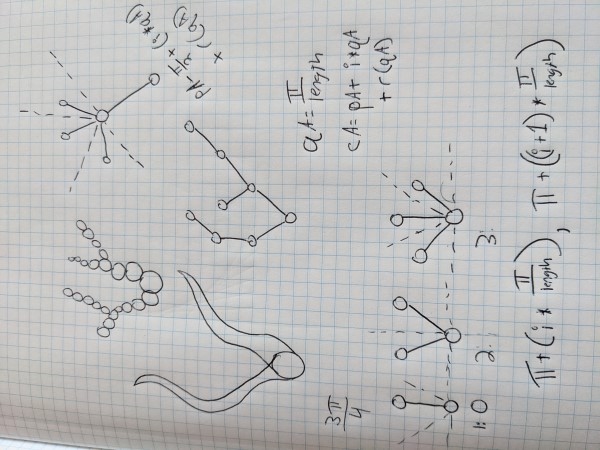 pA - π/2 + (i * qA)
+ r(qA)
qA = π/length
cA = pA + i * qA
+ r(qA)
3π/4
1: 0
2:
3:
π + (i * π/length), π + ((i+1) * π/length)